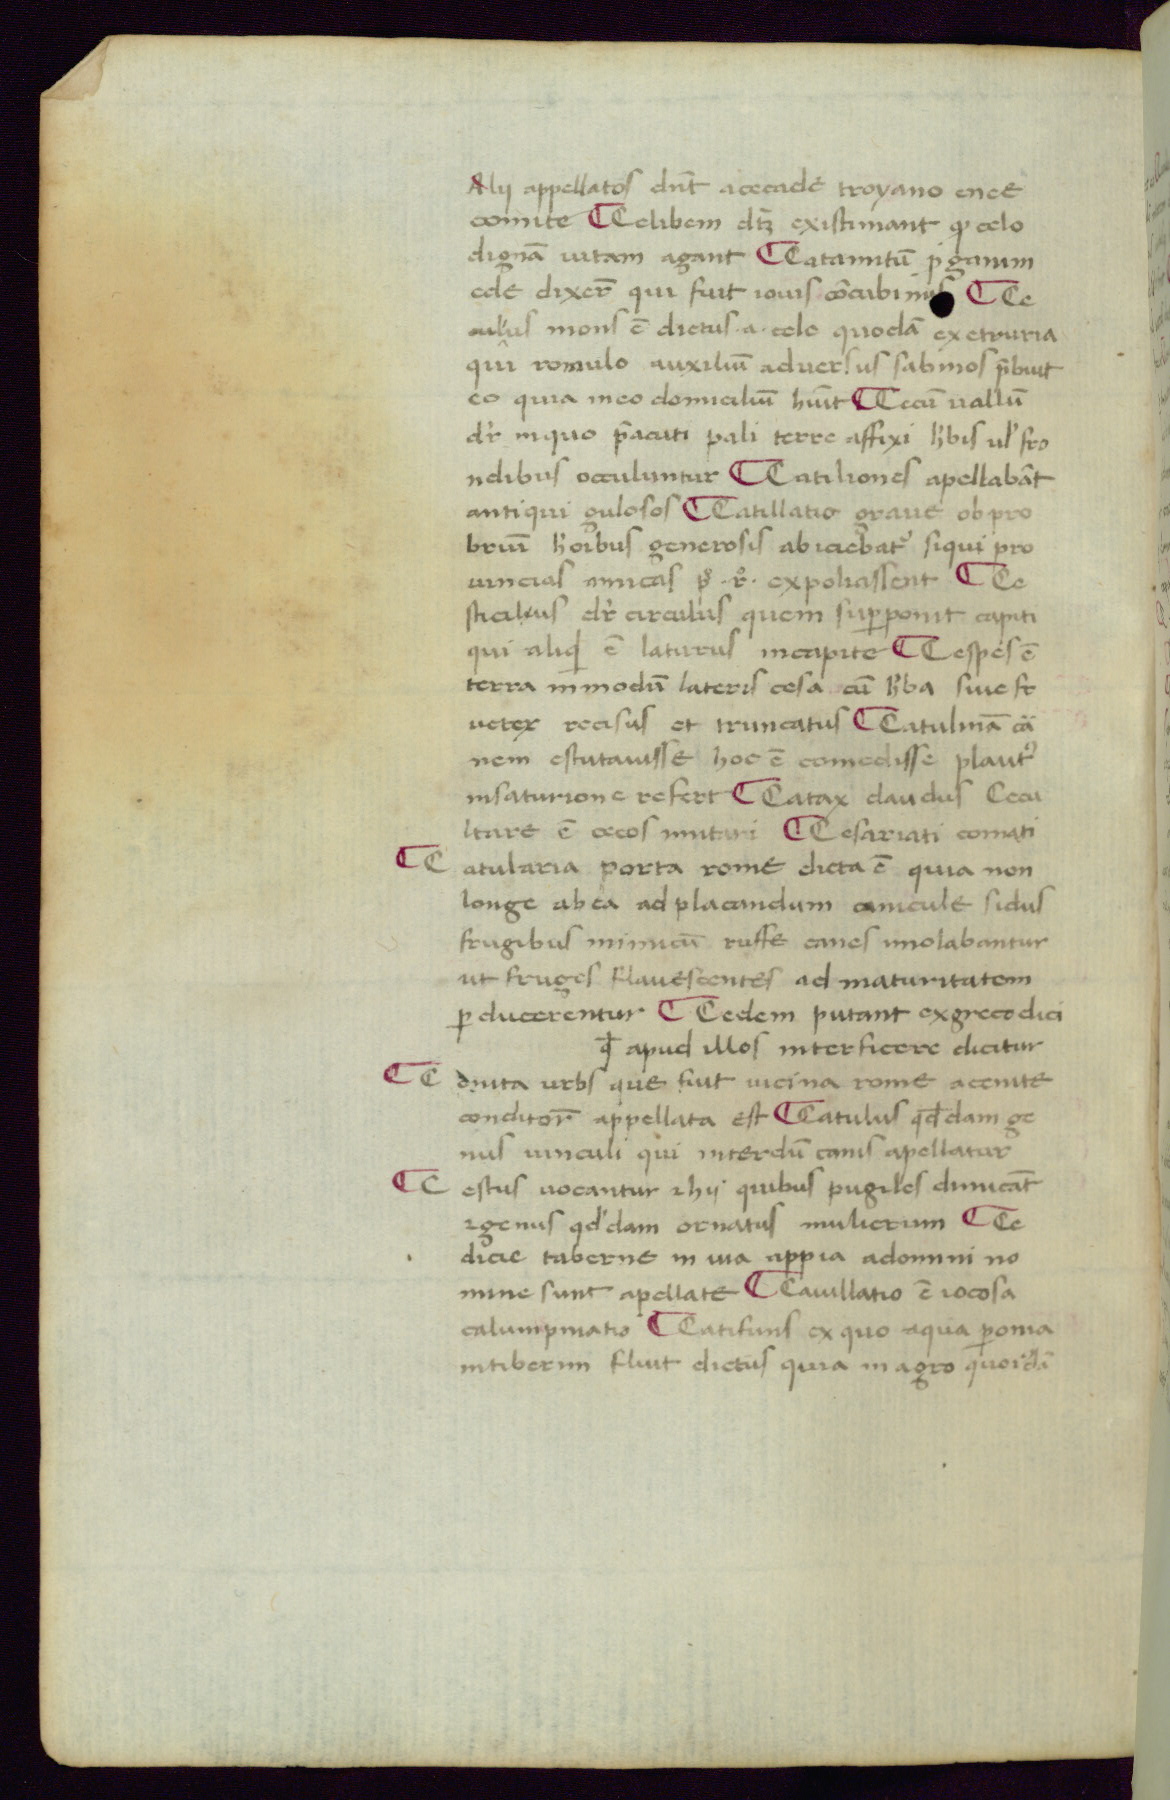 Alij appellatos dn̄t acecade troyano enee
comite ¶ Celibem dt̄ȝ existimant ꝙ celo
dignā uitam agant ¶ Catamitū ꝓ ganim
ede dixer̄ qui fuit iouis cōcubinus ¶ Ce
culus mons ē dictus ·a· celo quodā exetruria
qui romulo auxiliū aduersus sabinos p̄buit
eo quia ineo domiciliū huit ¶ Cecū uallū
dr̄ inquo p̄acuti pali terre affixi h̓bis ul̓ fro
ndibus occuluntur ¶ Catiliones apellabāt
antiqui gulosos ¶ Catillatio graue obpro
briū hōibus generosis abiciebat᷑ siqui pro
uincias amicas p̊ ·r̊· expoliassent ¶ Ce
sticillus dr̄ circulus quem superponit capiti
qui aliqd̓ ē laturus incapite ¶ Cespes ē
terra inmodū lateris cesa cū h̓ba siue fr
utex recisus et truncatus ¶ Catulinā ca
nem esitauisse hoc ē comedisse plaut᷑
insaturione refert ¶ Catax claudus Cecu
ltare ē cecos imitari ¶ Cesariati comati
¶ C atularia porta rome dicta ē quia non
longe abea adplacandum canicule sidus
frugibus inimicū ruffe canes imolabantur
ut fruges flauescentes ad maturitatem
ꝑducerentur ¶ Cedem putant exgreco dici
qd̄ apud illos interficere dicitur
¶ C enita urbs que fuit uicina rome acenite
conditor̄ appellata est ¶ Catulus qd̄dam ge
nus uinculi qui interdū canis apellatur
¶ C estus uocantur ⁊ hij quibus pugiles dimicāt
⁊genus qd̓dam ornatus mulierum ¶ Ce
dicie taberne in uia appia adomini no
mine sunt apellate ¶ Cauillatio ē iocosa
calumpniatio ¶ Catifuns ex quo aqua ꝑonia
intiberim fluit dictus quia in agro quoidā